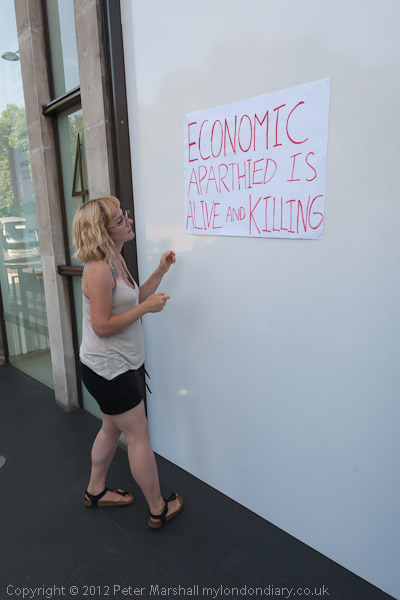 ECONOMIC
APARTHIED IS
ALIVE AND KILLING
Copyright © 2012 Peter Marshall mylondondiary.co.uk